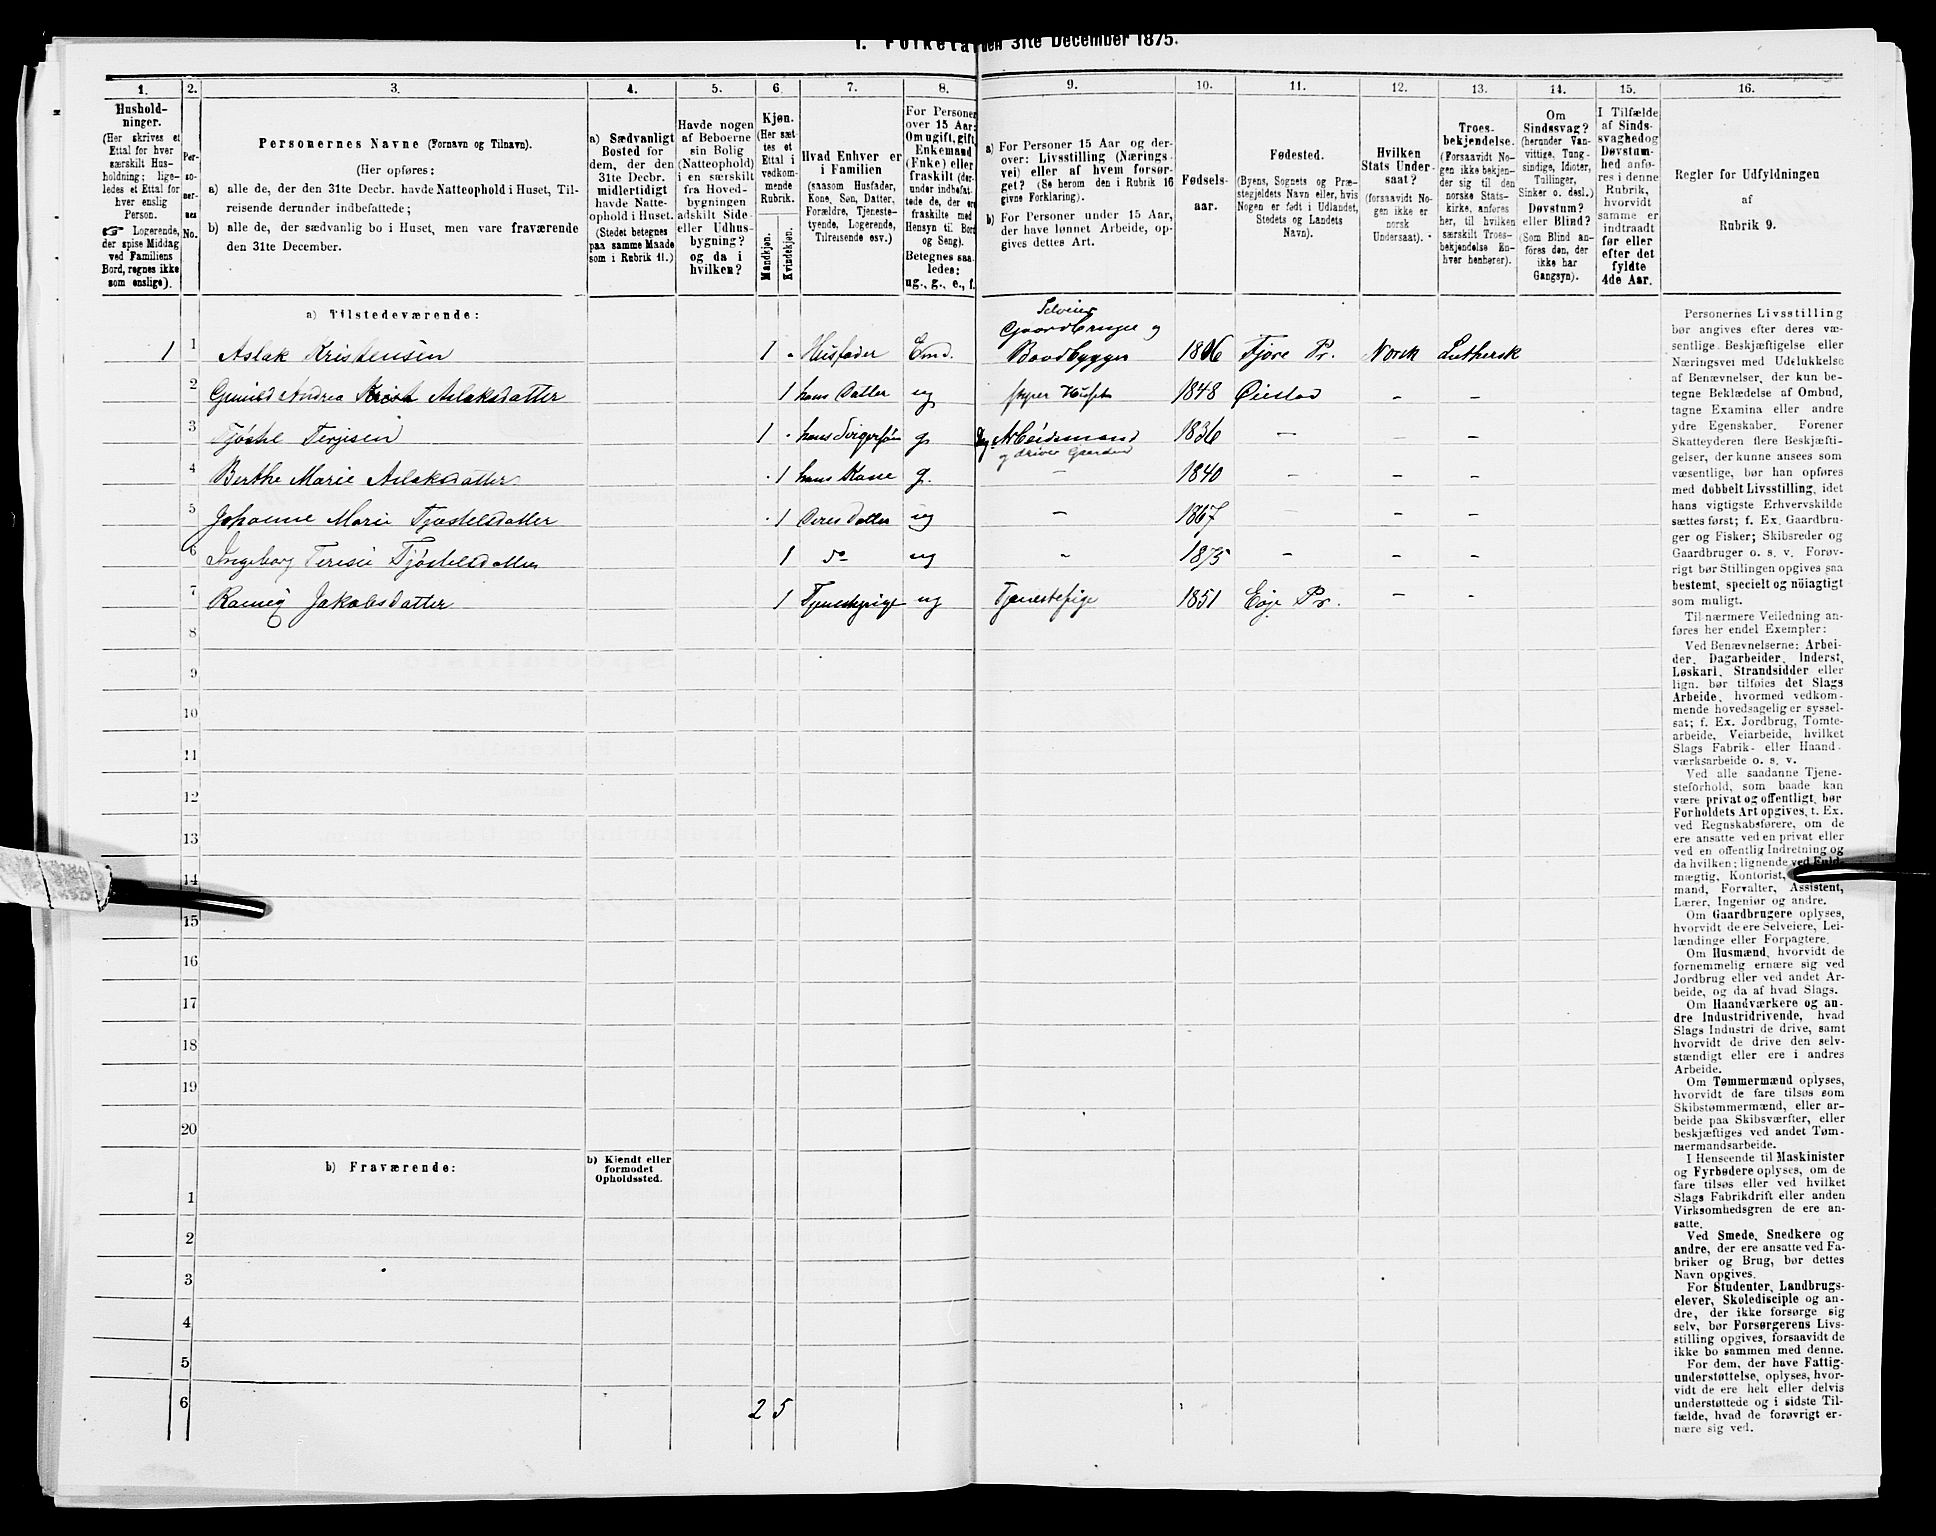 I. Folketal den 31te December 1875.
1. 2. 3. 4. 5. 6. 7. 8. 9. 10. 11. 12. 13. 14. 15. 16.
Hushold-
ninger.
(Her skrives et
Ettal for hver
særskilt Hus-
holdning; lige-
ledes et Ettal for
hver enslig
Person.
☞ Logerende,
der spise Middag
ved Familiens
Bord, regnes ikke
som enslige).
Per-
so-
ner-
nes
No.
Personernes Navne (Fornavn og Tilnavn).
(Her opføres:
a) alle de, der den 31te Decbr. havde Natteophold i Huset, Til-
reisende derunder indbefattede;
b) alle de, der sædvanlig bo i Huset, men vare fraværende
den 31te December.
a) Sædvanligt
Bosted for
dem, der den
31te Decbr.
midlertidigt
havde Natte-
ophold i Huset.
(Stedet betegnes
paa samme Maade
som i Rubrik 11.)
Havde nogen
af Beboerne
sin Bolig
(Natteophold)
i en særskilt
fra Hoved-
bygningen
adskilt Side-
eller Udhus-
bygning?
og da i
hvilken?
Kjøn.
(Her sæt-
tes et
Ettal i
vedkom-
mende
Rubrik.
Mandkjøn.
Kvindekjøn.
Hvad Enhver er
i Familien
(saasom Husfader,
Kone, Søn, Datter,
Forældre, Tjeneste-
tyende, Logerende,
Tilreisende osv.)
For Personer
over 15 Aar:
Om ugift, gift,
Enkemand
(Enke) eller
fraskilt (der-
under indbefat-
tede de, der ere
fraskilte med
Hensyn til Bord
og Seng).
Betegnes saa-
ledes:
ug., g., e., f.
a) For Personer 15 Aar og der-
over: Livsstilling (Nærings-
vei) eller af hvem forsør-
get? (Se herom den i Rubrik 16
givne Forklaring).
b) For Personer under 15 Aar,
der have lønnet Arbeide, op-
gives dettes Art.
Fødsels-
aar.
Fødested.
(Byens, Sognets og Præ-
stegjeldets Navn eller, hvis
Nogen er født i Udlandet,
Stedets og Landets
Navn).
Hvilken
Stats Under-
saat?
(forsaavidt No-
gen ikke er
norsk
Undersaat).
Troes-
bekjendelse.
(Forsaavidt No-
gen ikke bekjen-
der sig til den
norske Stats-
kirke, anføres
her, til hvilket
særskilt Troes-
bekjendelse En-
hver henhører).
Om
Sindssvag?
(herunder Van-
vittige, Tung-
sindige, Idioter,
Tullinger,
Sinker o. desl.)
Døvstum?
eller Blind?
(Som Blind an-
føres den, der
ikke har
Gangsyn).
I Tilfælde
af Sinds-
svaghed og
Døvstum-
hed anfø-
res i denne
Rubrik,
hvorvidt
samme er
indtraadt
før eller
efter det
fyldte
4de Aar.
Regler for Udfyldningen
af
Rubrik 9.
a) Tilstedeværende:
Selveier
Gaardbruger og
1 1 Aslak Kristensen 1 - Husfader Emd. Baadbygger 1806 Fjære Pr. Norsk Luthersk
2 Gunild Andrea Aslaksdatter 1 hans Datter ug Huset 1848 Øiestad - -
3 Tjøstel Terjesen 1 - hans Svigersøn g Dag Arbeidsmand 1836 - - -
og driver Gaarden
4 Berthe Marie Aslaksdatter - 1 hans Kone g. - 1840 - - -
5 Johanne Marie Tjøstelsdatter - 1 Deres Datter ug - 1867 - - -
6 Ingeborg Teresie Tjøstelsdatter 1 do ug - 1875 - - -
7 Jakobsdatter 1 Tjenestepige ug Tjenestepige 1851 Evje Pr. - -
8
9
10
11
12
13
14
15
16
17
18
19
20
b) Fraværende:
b) Kjendt eller
formodet
Opholdssted.
1
2
3
4
5
6
2 5
Personernes Livsstilling
bør angives efter deres væ-
sentlige Beskjæftigelse eller
Næringsvei med Udelukkelse
af Benævnelser, der kun be-
tegne Beklædelse af Ombud,
tagne Examina eller andre
ydre Egenskaber. Forener
Skatteyderen flere Beskjæfti-
gelser, der kunne ansees som
væsentlige, bør han opføres
med dobbelt Livsstilling, idet
hans vigtigste Erhvervskilde
sættes først; f. Ex. Gaardbru-
ger og Fisker; Skibsreder og
Gaardbruger o. s. v. Forøv-
rigt bør Stillingen opgives saa
bestemt, specielt og nöiagtigt
som muligt.
Til nærmere Veiledning an-
føres her endel Exempler:
Ved Benævnelserne: Arbei-
der, Dagarbeider, Inderst,
Løskarl, Strandsidder eller
lign. bør tilføies det Slags
Arbeide, hvormed vedkom-
mende hovedsagelig er syssel-
sat; f. Ex. Jordbrug, Tomte-
arbeide, Veiarbeide, hvilket
Slags Fabrik- eller Haand-
værksarbeide o. s. v.
Ved alle saadanne Tjene-
steforhold, som baade kan
være privat og offentligt, bør
Forholdets Art opgives, t. Ex.
ved Regnskabsførere, om de
ere ansatte ved en privat eller
ved en offentlig Indretning og
da hvilken; lignende ved Fuld-
mægtig, Kontorist,
mand, Forvalter, Assistent,
Lærer, Ingeniør og andre.
Om Gaardbrugere oplyses,
hvorvidt de ere Selveiere, Lei-
lændinge eller Forpagtere.
Om Husmænd, hvorvidt de
fornemmelig ernære sig ved
Jordbrug eller ved andet Ar-
beide, og da af hvad Slags.
Om Haandværkere og an-
dre Industridrivende, hvad
Slags Industri de drive, samt
hvorvidt de drive den selv-
stændigt eller ere i andres
Arbeide.
Om Tømmermænd oplyses,
hvorvidt de fare tilsøs som
Skibstømmermænd, eller ar-
beide paa Skibsværfter, eller
beskjæftiges ved andet Tøm-
mermandsarbeide.
I Henseende til Maskinister
og Fyrbødere oplyses, om de
fare tilsøs eller ved hvilket
Slags Fabrikdrift eller anden
Virksomhedsgren de ere an-
satte.
Ved Smede, Snedkere og
andre, der ere ansatte ved Fa-
briker og Brug, bør dettes
Navn opgives.
For Studenter, Landbrugs-
elever, Skoledisciple og an-
dre, der ikke forsørge sig
selv, bør Forsørgerens Livs-
stilling opgives, forsaavidt de
ikke bo sammen med denne.
For dem, der have Fattig-
understøttelse, oplyses, hvor-
vidt de ere helt eller delvis
understøttede og i sidste Til-
fælde, hvad de forøvrigt er-
nære sig ved.